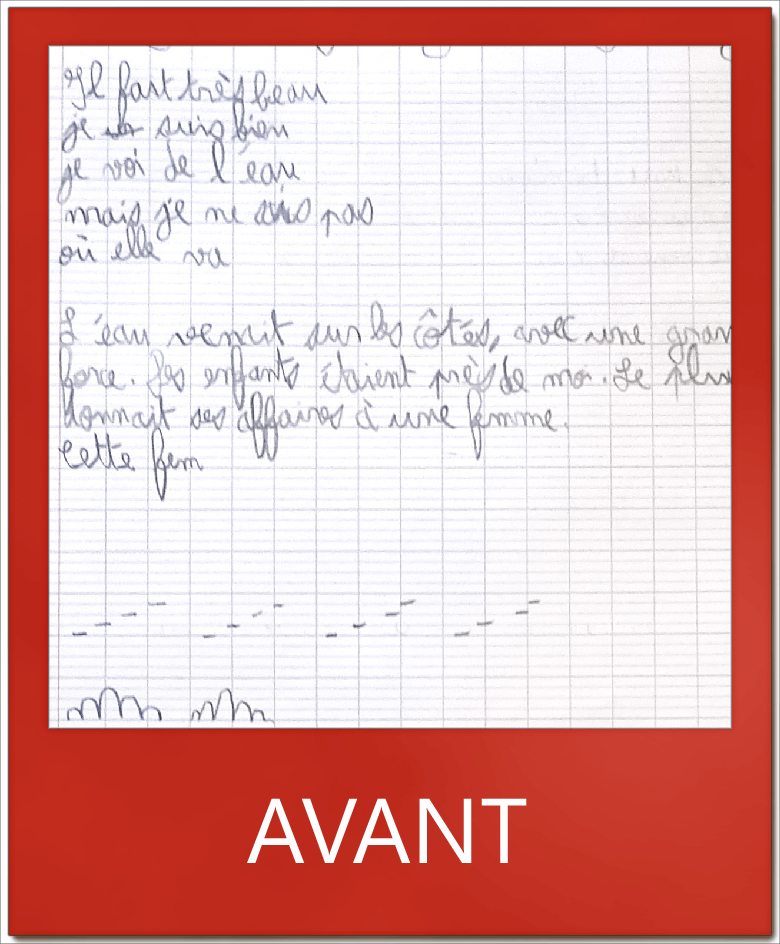 Il fait très beau
je suis bien
je voi de l'éau
mais je ne sais pas
où elle va
L'éau venait sur les côtés, avec une gran
force. Les enfants étaient près de moi. Le plus
donnait ses affaires à une femme.
Cette fem
AVANT